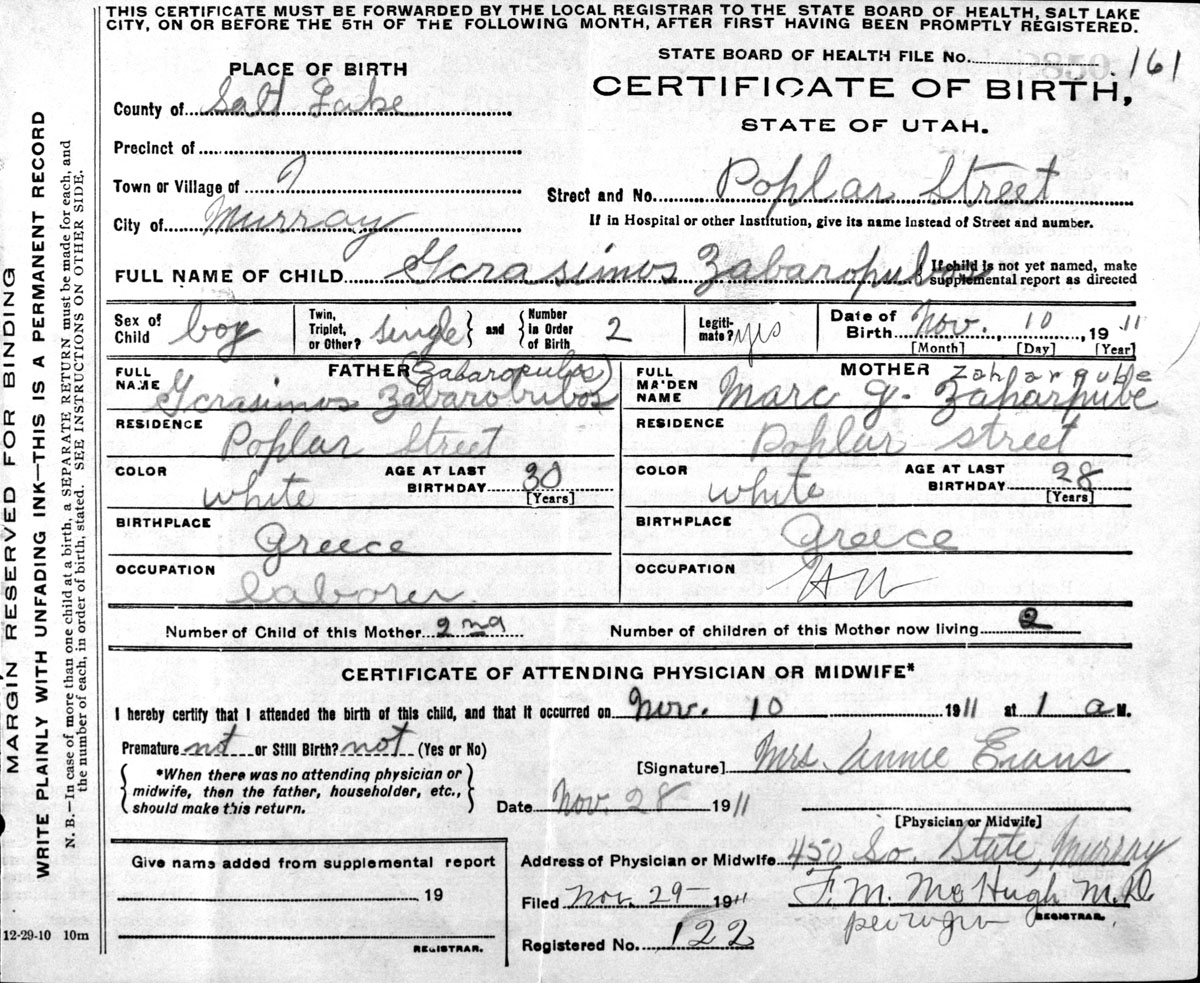 THIS CERTIFICATE MUST BE FORWARDED BY THE LOCAL REGISTRAR TO THE STATE BOARD OF HEALTH, SALT LAKE
CITY, ON OR BEFORE THE 5TH OF THE FOLLOWING MONTH, AFTER FIRST HAVING BEEN PROMPTLY REGISTERED.
MARGIN RESERVED FOR BINDING
WRITE PLAINLY WITH UNFADING INK—THIS IS A PERMANENT RECORD
N. B.—In case of more than one child at a birth, a SEPARATE RETURN must be made for each, and
the number of each, in order of birth, stated. SEE INSTRUCTIONS ON OTHER SIDE.
STATE BOARD OF HEALTH FILE No. 161
CERTIFICATE OF BIRTH,
STATE OF UTAH.
PLACE OF BIRTH
County of Salt Lake
Precinct of
Town or Village of
City of Murray
Street and No. Poplar Street
If in Hospital or other Institution, give its name instead of Street and number.
FULL NAME OF CHILD Gerasimos Zabaropulos
If child is not yet named, make
supplemental report as directed
Sex of Child boy
Twin, Triplet, or Other? single
and Number in Order of Birth 2
Legitimate? yes
Date of Birth Nov. 10, 1911
[Month] [Day] [Year]
FATHER
FULL NAME (Zabaropulos)
Gerasimos Zabarobubos
RESIDENCE
Poplar Street
COLOR white AGE AT LAST BIRTHDAY 30
[Years]
BIRTHPLACE
Greece
OCCUPATION
laborer.
MOTHER
FULL MAIDEN NAME
Marc G. Zaharpube
RESIDENCE
Poplar street
COLOR white AGE AT LAST BIRTHDAY 28
[Years]
BIRTHPLACE
Greece
OCCUPATION
HW
Number of Child of this Mother 2nd
Number of children of this Mother now living 2
CERTIFICATE OF ATTENDING PHYSICIAN OR MIDWIFE*
I hereby certify that I attended the birth of this child, and that it occurred on Nov. 10 1911 at 1 a M.
Premature not or Still Birth? not (Yes or No)
*When there was no attending physician or
midwife, then the father, householder, etc.,
should make this return.
[Signature] Mrs. Annie Evans
Date Nov. 28 1911
[Physician or Midwife]
Give name added from supplemental report
19
REGISTRAR.
Address of Physician or Midwife 450 So. State, Murray
Filed Nov. 29 1911 F. M. McHugh M. D.
REGISTRAR.
Registered No. 122
12-29-10 10m